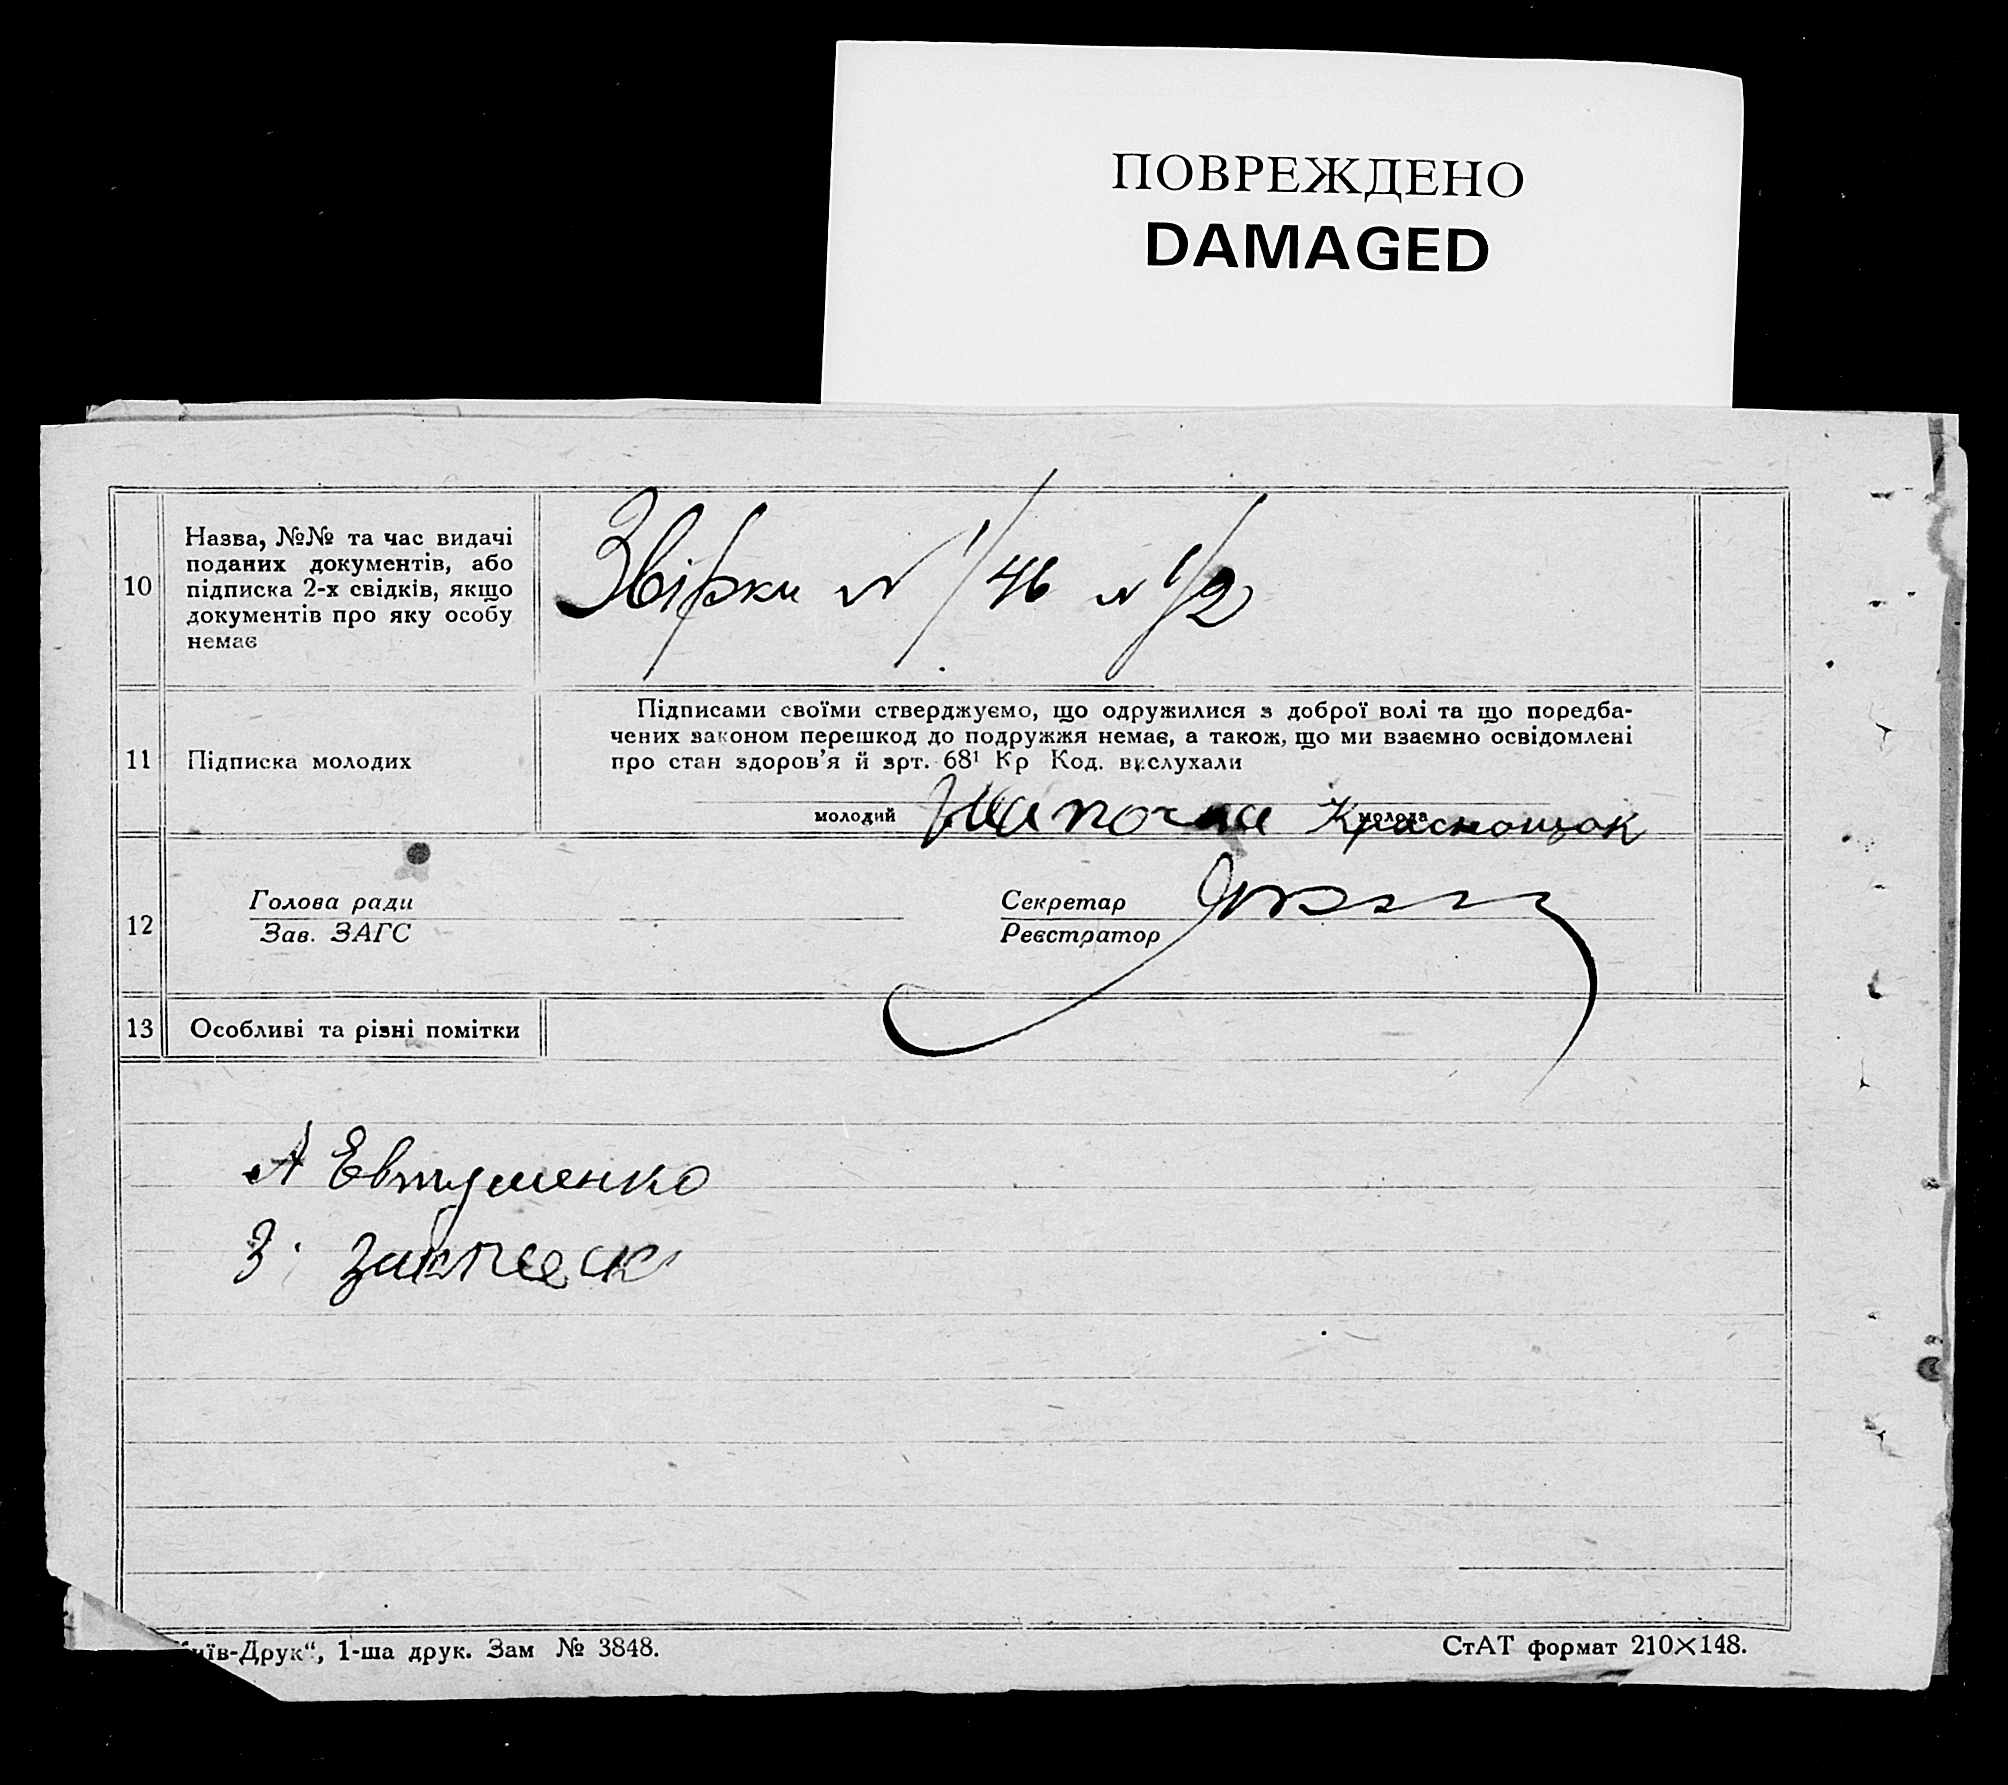 ПОВРЕЖДЕНО
DAMAGED
10
Назва, №№ та час видачі
поданих документів, або
підписка 2-х свідків, якщо
документів про яку особу
немає
Звірки N 1/46 N 1/2
11
Підписка молодих
Підписами своїми стверджуємо, що одружилися з доброї волі та що поредба-
чених законом перешкод до подружжя немає, а також, що ми взаємно освідомлені
про стан здоров'я й зрт. 68¹ Кр Код. вислухали
молодий молода Краснощок
12
Голова ради
Зав. ЗАГС
Секретар
Реєстратор
13
Особливі та різні помітки
А Евтушенко
З.
иїв-Друк“, 1-ша друк. Зам № 3848.
СтАТ формат 210×148.